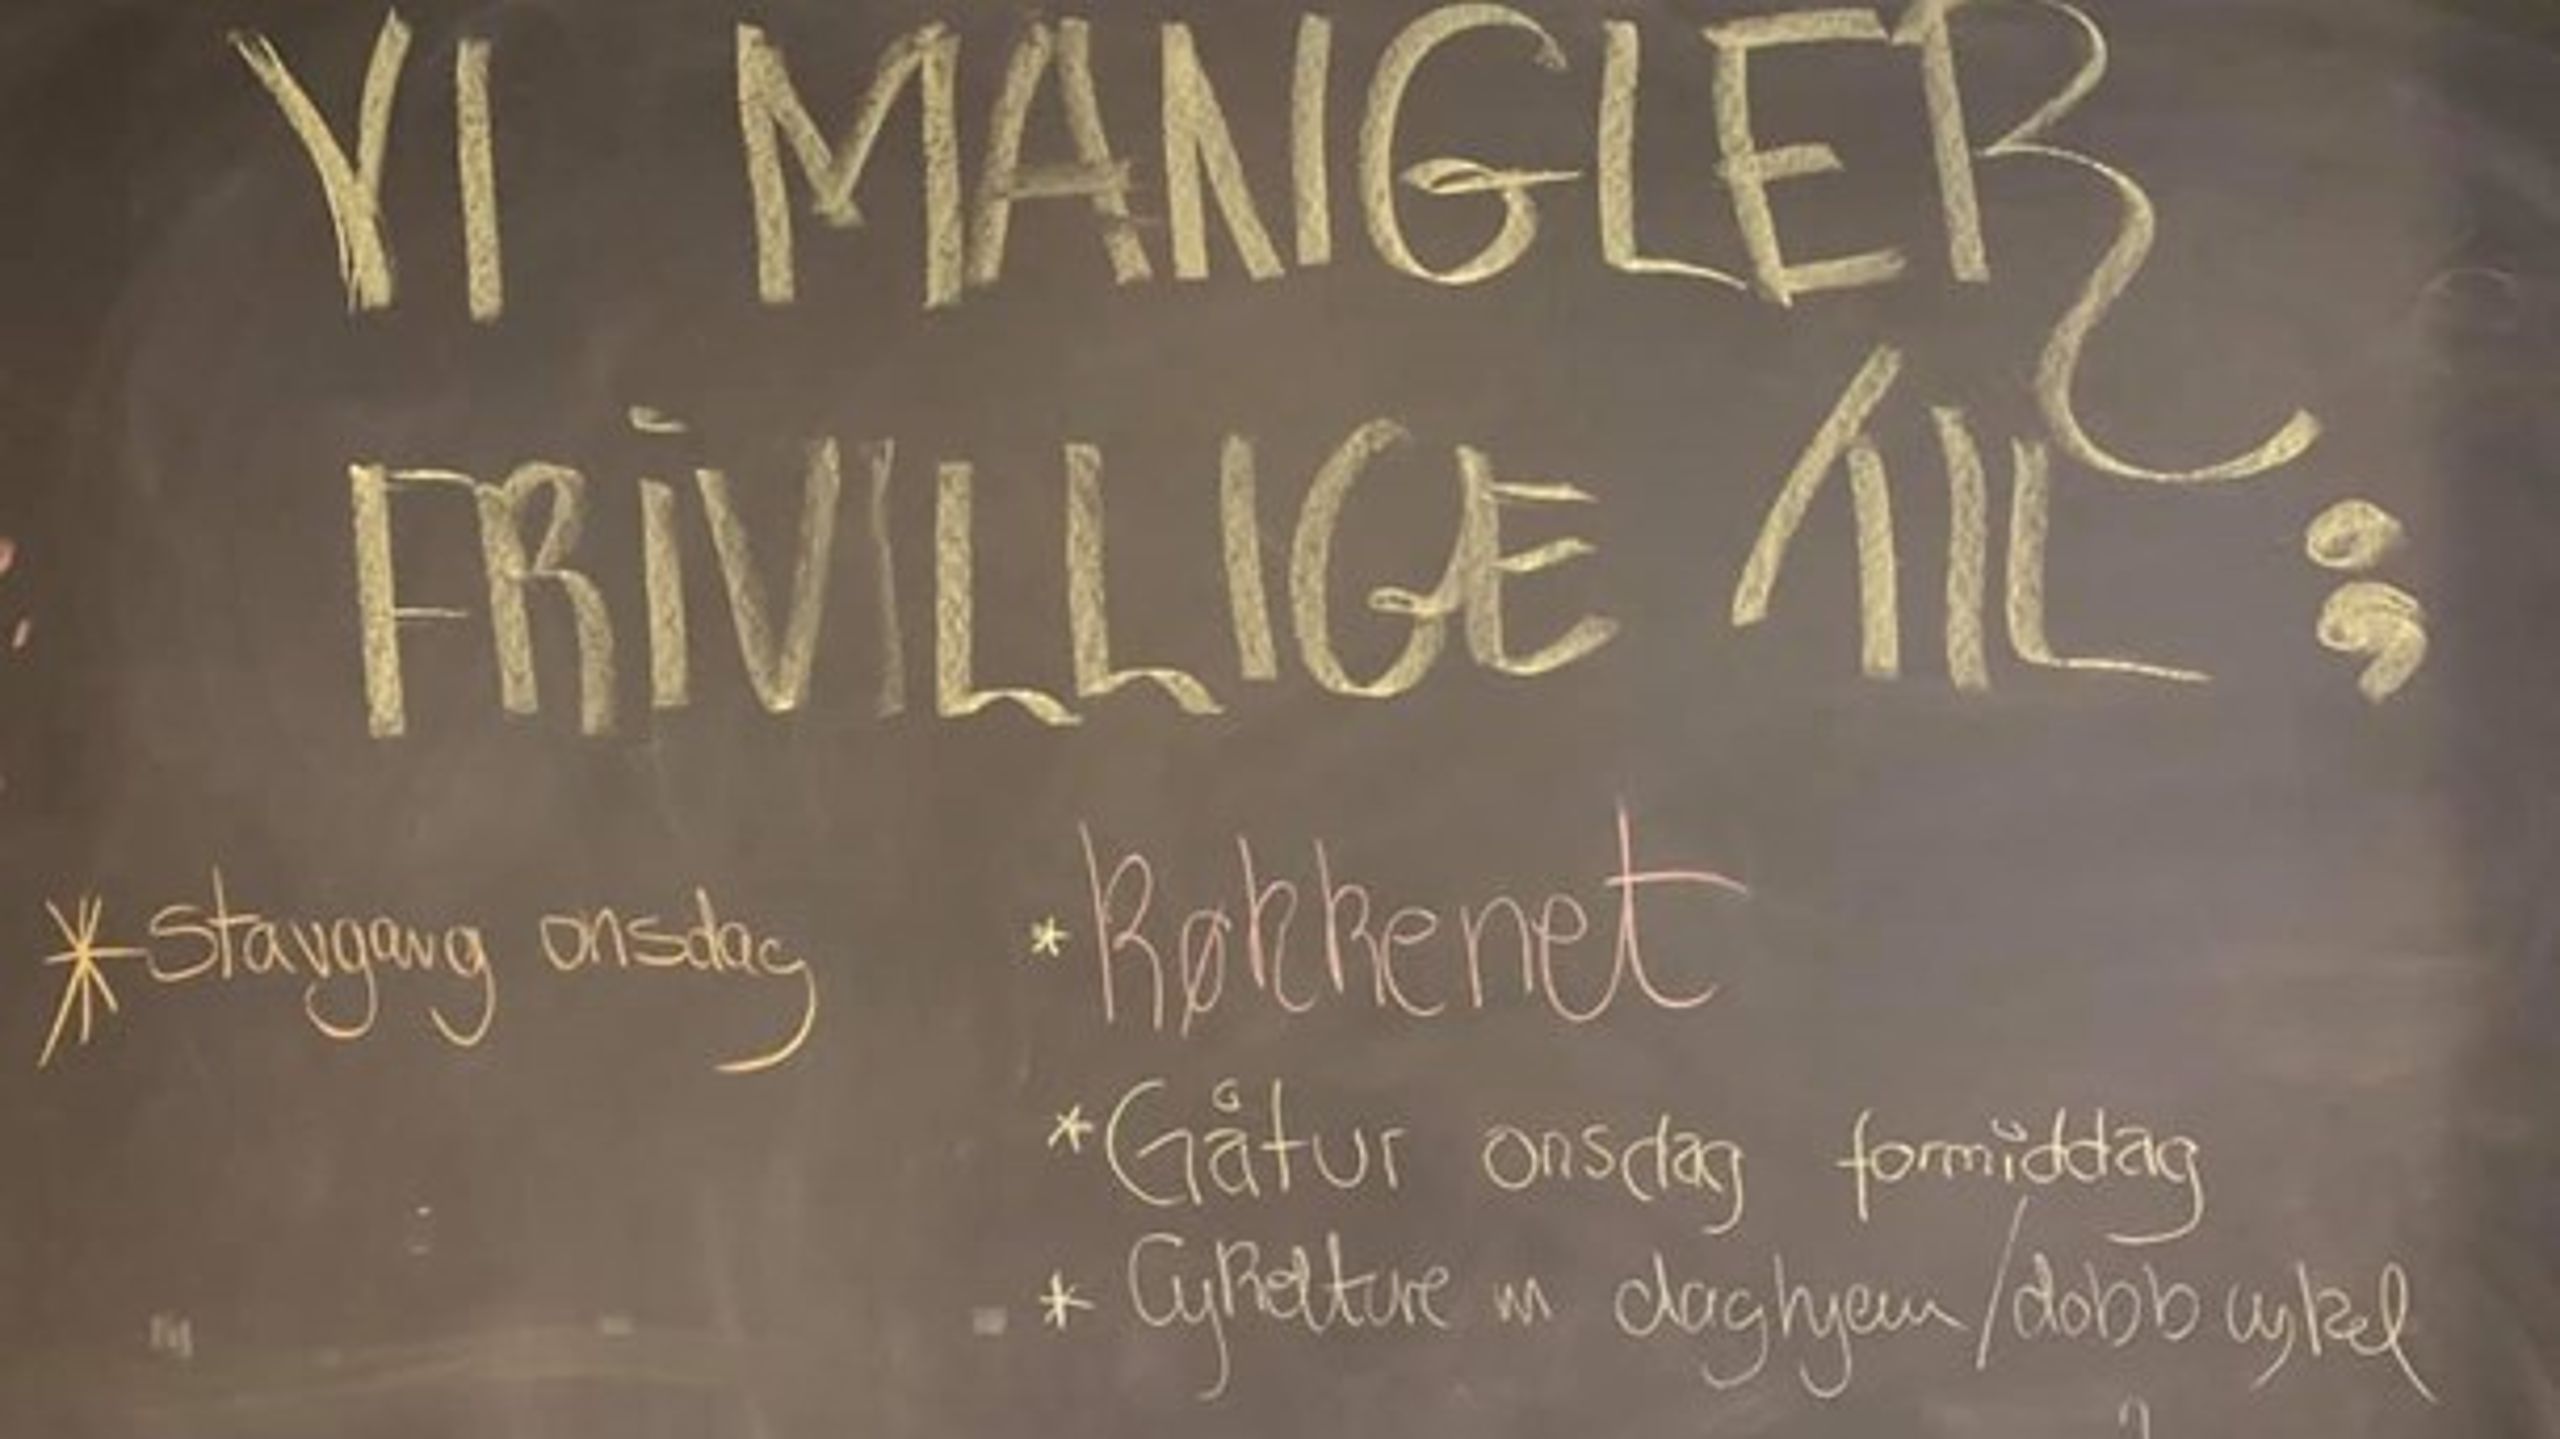 VI MANGLER
FRIVILLIGE TIL ;
* Stavgang onsdag
* Køkkenet
* Gåtur onsdag formiddag
* Cykelture m daghjem/dobb cykel